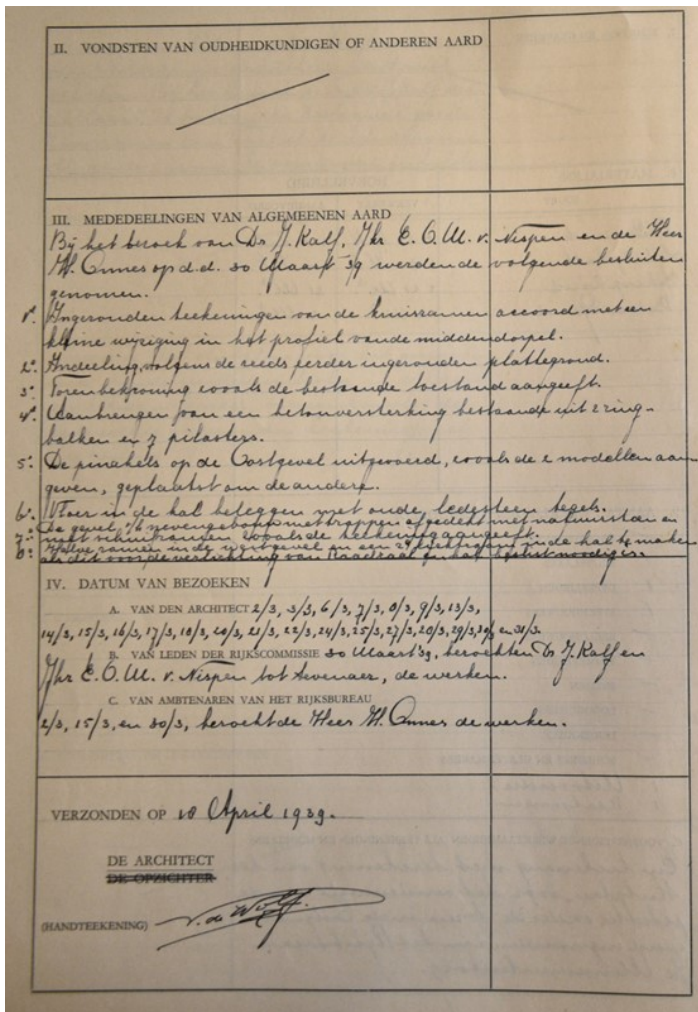 II. VONDSTEN VAN OUDHEIDKUNDIGEN OF ANDEREN AARD
III. MEDEDEELINGEN VAN ALGEMEENEN AARD
Bij het bezoek van Dr J. Kalf, Jhr E. O. M. v. Nispen en de Heer
H. Onnes op d.d. 30 Maart '39 werden de volgende besluiten
genomen.
1e. Ingezonden teekeningen van de kruisramen accoord met een
kleine wijziging in het profiel van de middendorpel.
2e Indeeling, volgens de reeds eerder ingezonden plattegrond.
3e Torenbekroning zooals de bestaande toestand aangeeft.
4e Aanbrengen van een betonversterking bestaande uit 2 ring-
balken en 7 pilasters.
5e. De pinakels op de Oostgevel uitgevoerd, zooals de 2 modellen aan
geven, geplaatst om de andere.
6e. Vloer in de hal beleggen met oude ledesteen tegels.
7e De gevel, v/h nevengebouw met trappen afgedekt met natuursteen en
met schuiframen zooals de teekening aangeeft.
8e. ramen in de westgevel en een in de hal te maken
als dit voor de verlichting van Raadzaal en hal noodig is.
IV. DATUM VAN BEZOEKEN
A. VAN DEN ARCHITECT 2/3, 3/3, 6/3, 7/3, 8/3, 9/3, 13/3,
14/3, 15/3, 16/3, 17/3, 18/3, 20/3, 21/3, 22/3, 24/3, 25/3, 27/3, 28/3, 29/3, 30/3 en 31/3.
B. VAN LEDEN DER RIJKSCOMMISSIE 30 Maart '39, bezochten Dr J. Kalf en
Jhr E. O. M. v. Nispen tot Sevenaer, de werken.
C. VAN AMBTENAREN VAN HET RIJKSBUREAU
2/3, 15/3, en 30/3, bezocht de Heer H. Onnes de werken.
VERZONDEN OP 18 April 1939.
DE ARCHITECT
DE OPZICHTER
(HANDTEEKENING) V. de Wolf.